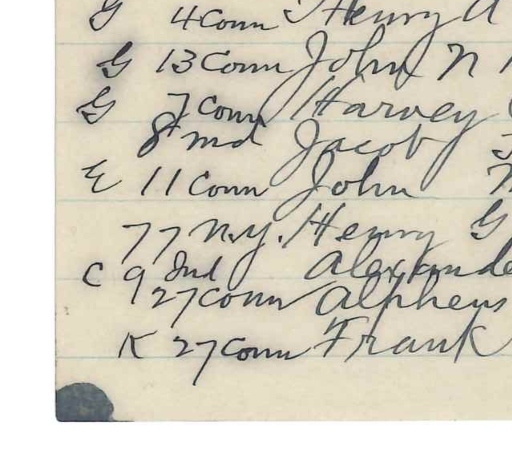 G 4 Conn Henry A
G 13 Conn John N
G 7 Conn Harvey
8 Md Jacob
E 11 Conn John
77 N.Y. Henry G
C 9 Ind Alexande
27 Conn Alpheus
K 27 Conn Frank